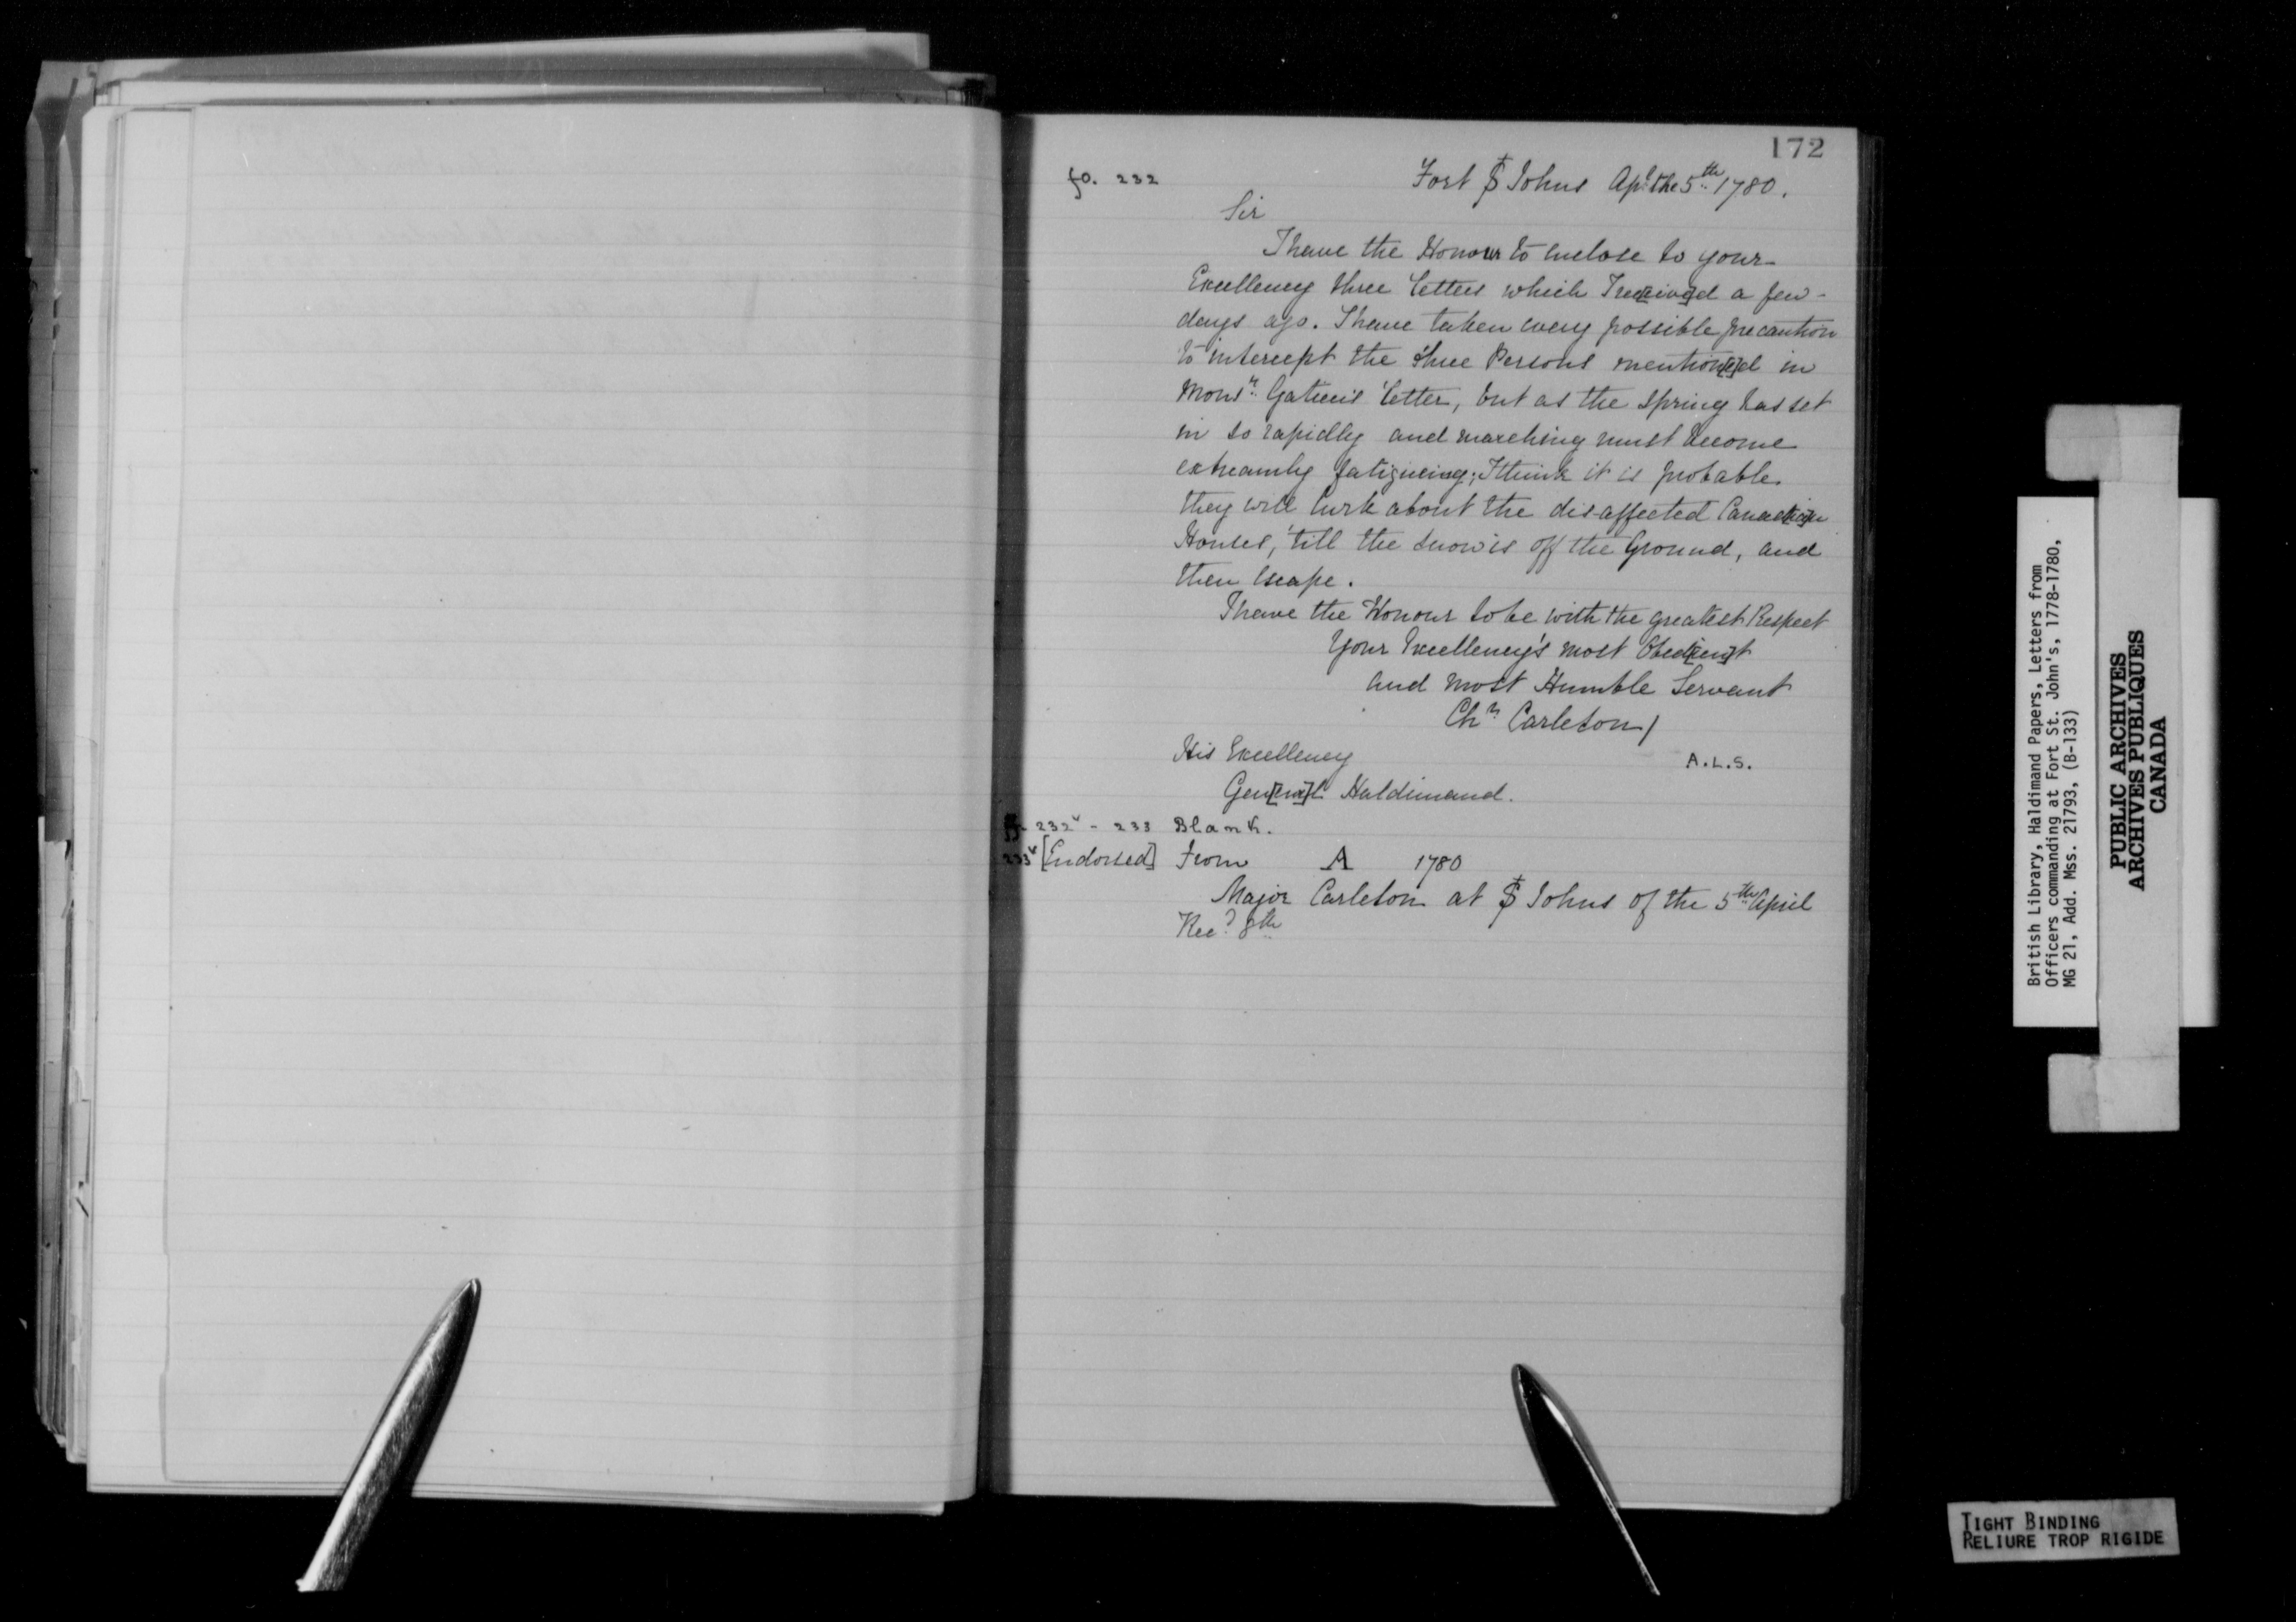 172
fo. 232
Fort St Johns Apl the 5th 1780.
Sir
I have the Honour to inclose to your
Excellency three letters which I rec[eive]d a few
days ago. I have taken every possible precaution
to intercept the three Persons mention[e]d in
Monsr letter, but as the spring has set
in so rapidly and marching must become
extreamly fatigueing; I think it is probable
they will lurk about the dis-affected Canad[ia]n
Houses, 'till the snow is off the Ground, and
then escape.
I have the Honour to be with the greatest Respect
Your Excellency's most Obed[ien]t
and most Humble Servant
Chr Carleton/
His Excellency
A.L.S.
Gen[era]l Haldimand.
232v - 233 Blank.
233v [Endorsed] From A 1780
Major Carleton at St Johns of the 5th April
Recd 8th
British Library, Haldimand Papers, Letters from
Officers commanding at Fort St. John's, 1778-1780,
MG 21, Add. Mss. 21793, (B-133)
PUBLIC ARCHIVES
ARCHIVES PUBLIQUES
CANADA
TIGHT BINDING
RELIURE TROP RIGIDE